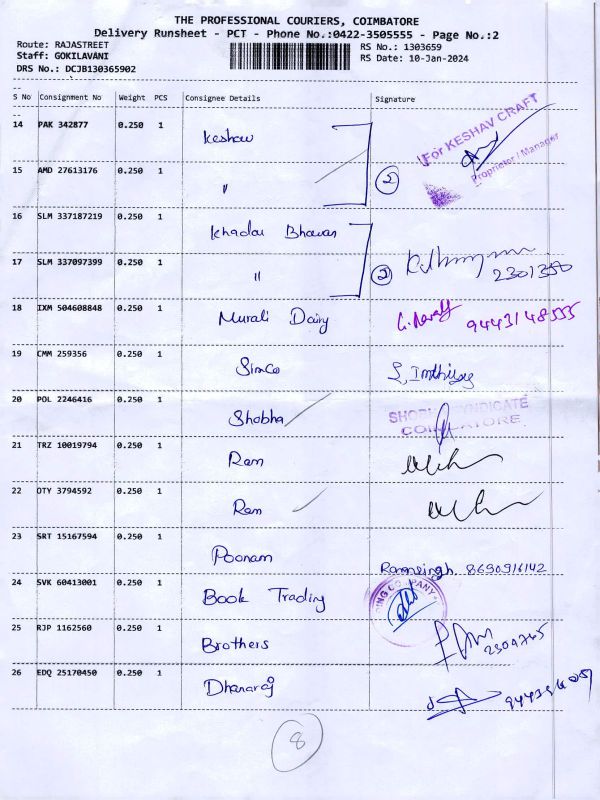 THE PROFESSIONAL COURIERS, COIMBATORE
Delivery Runsheet - PCT - Phone No.:0422-3505555 - Page No.:2
Route: RAJASTREET
Staff: GOKILAVANI
DRS No.: DCJB130365902
RS No.: 1303659
RS Date: 10-Jan-2024
S No Consignment No Weight PCS Consignee Details Signature
14 PAK 342877 0.250 1 Keshav For KESHAV CRAFT
Proprietor / Manager
15 AMD 27613176 0.250 1 " 2
16 SLM 337187219 0.250 1 Khadar Bhavan
17 SLM 337097399 0.250 1 " 2 2301350
18 IXM 504608848 0.250 1 Murali Dairy 9443148555
19 CMM 259356 0.250 1 Simco
20 POL 2246416 0.250 1 Shobha SYNDICATE
21 TRZ 10019794 0.250 1 Ram
22 OTY 3794592 0.250 1 Ram
23 SRT 15167594 0.250 1 Poonam Ramsingh 8690916142
24 SVK 60413001 0.250 1 Book Trading
25 RJP 1162560 0.250 1 Brothers
26 EDQ 25170450 0.250 1 Dhanaraj
8